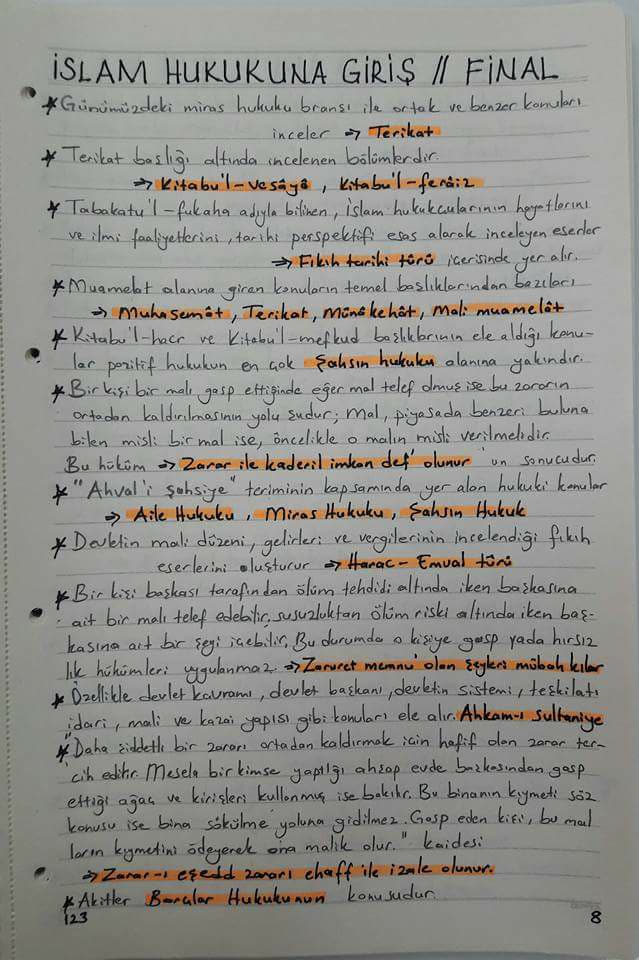 İSLAM HUKUKUNA GİRİŞ // FİNAL
* Günümüzdeki miras hukuku branşı ile ortak ve benzer konuları
inceler ⇒ Terikat
* Terikat başlığı altında incelenen bölümlerdir.
⇒ Kitabu'l-vesâyâ, Kitabu'l-ferâiz
* Tabakatu'l-fukaha adıyla bilinen, İslam hukukcularının hayatlarını
ve ilmi faaliyetlerini, tarihi perspektifi esas alarak inceleyen eserler
⇒ Fıkıh tarihi türü içerisinde yer alır.
* Muamelat alanına giren konuların temel başlıklarından bazıları
⇒ Muhasemât, Terikat, Münâkehât, Mali muamelât
* Kitabu'l-hacr ve Kitabu'l-mefkud başlıklarının ele aldığı konu-
lar pozitif hukukun en çok şahsın hukuku alanına yakındır.
* Bir kişi bir malı gasp ettiğinde eğer mal telef olmuş ise bu zararın
ortadan kaldırılmasının yolu şudur; Mal, piyasada benzeri buluna
bilen misli bir mal ise, öncelikle o malın misli verilmelidir.
Bu hüküm ⇒ Zarar ile kaderil imkan def' olunur 'un sonucudur.
* "Ahval'i Şahsiye" teriminin kapsamında yer alan hukuki konular
⇒ Aile Hukuku, Miras Hukuku, Şahsın Hukuk
* Devletin mali düzeni, gelirleri ve vergilerinin incelendiği fıkıh
eserlerini oluşturur ⇒ Harac-Emval türü
* Bir kişi başkası tarafından ölüm tehdidi altında iken başkasına
ait bir malı telef edebilir, susuzluktan ölüm riski altında iken baş-
kasına ait bir şeyi içebilir. Bu durumda o kişiye gasp yada hırsız
lık hükümleri uygulanmaz. ⇒ Zaruret memnu' olan şeyleri mübah kılar
* Özellikle devlet kavramı, devlet başkanı, devletin sistemi, teşkilatı
idari, mali ve kazai yapısı gibi konuları ele alır. Ahkam-ı Sultaniye
* "Daha şiddetli bir zararı ortadan kaldırmak için hafif olan zarar ter-
cih edilir. Mesela bir kimse yaptığı ahşap evde başkasından gasp
ettiği ağaç ve kirişleri kullanmış ise bakılır. Bu binanın kıymeti söz
konusu ise bina sökülme yoluna gidilmez. Gasp eden kişi, bu mal
ların kıymetini ödeyerek ona malik olur." kaidesi
⇒ Zarar-ı eşedd zararı ehaff ile izale olunur.
* Akitler Borçlar Hukukunun konusudur.
123 8